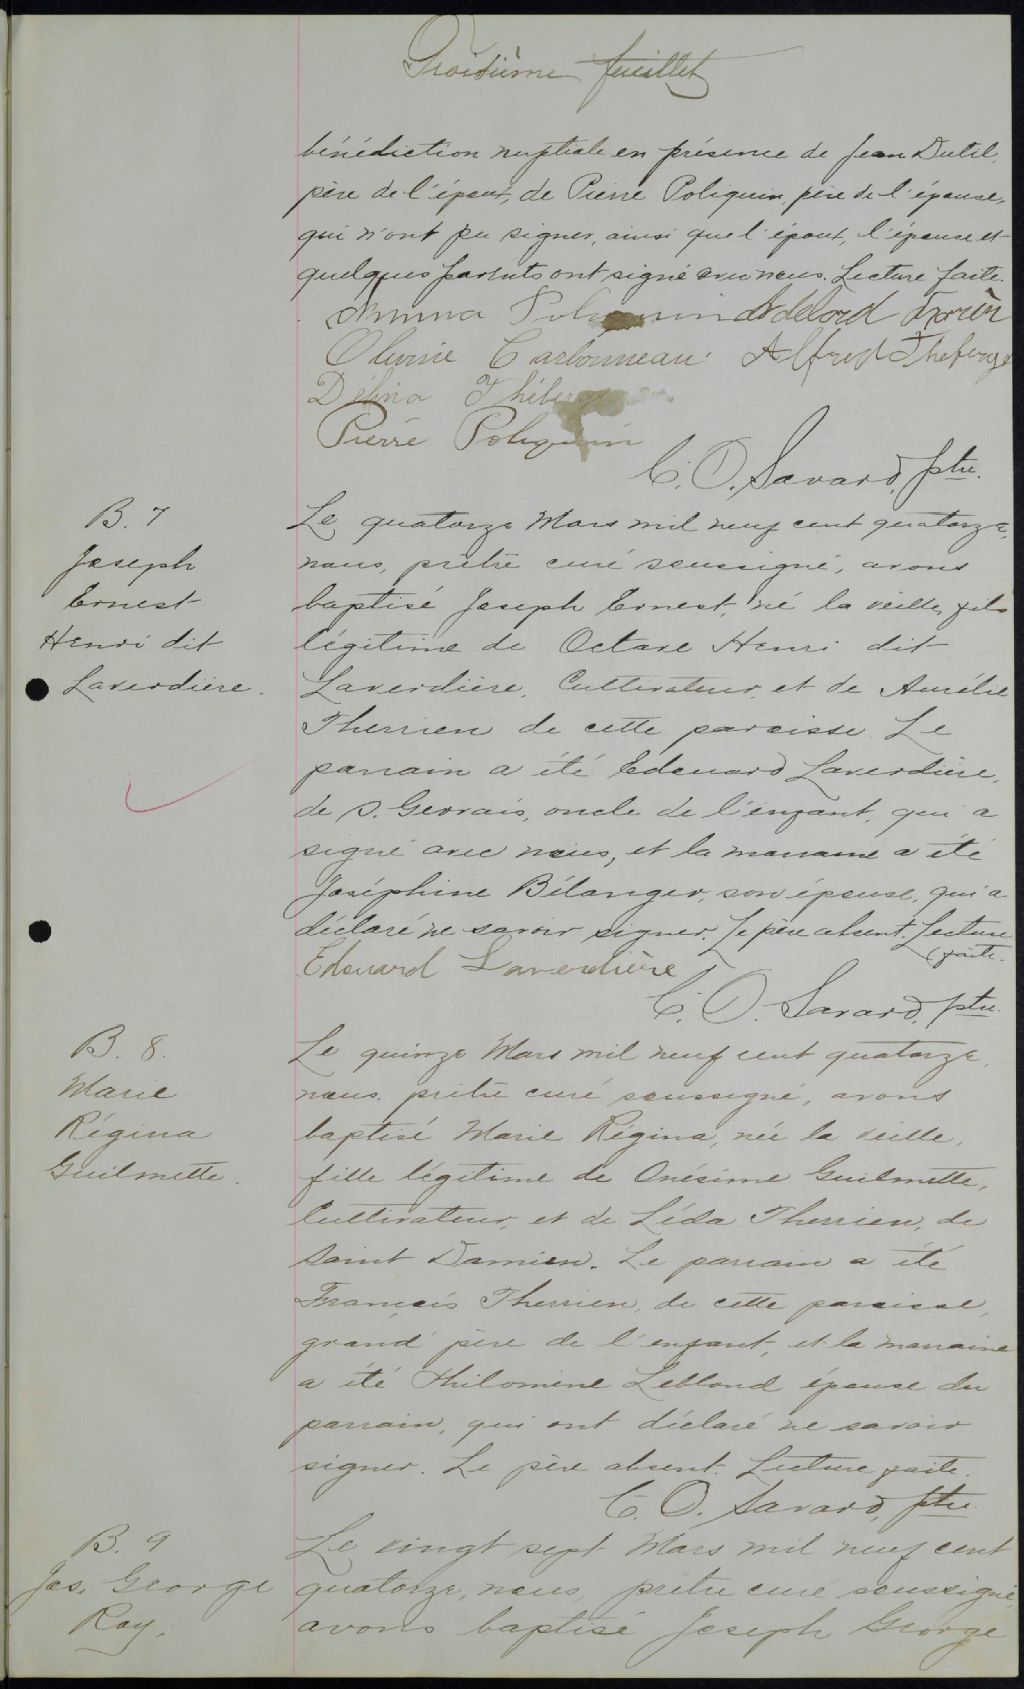 Troisième feuillet
bénédiction nuptiale en présence de Jean Dutil,
père de l'époux, de Pierre Poliquin, père de l'épouse,
qui n'ont pu signer, ainsi que l'époux, l'épouse et
quelques parents ont signé avec nous. Lecture faite.
Poliquin Adélard
Olivine Carbonneau Alfred Theberge
Délina Théberge
Pierre Poliquin
C. O. Savard, ptre.
B. 7
Joseph
Ernest
Henri dit
Laverdière.
Le quatorze Mars mil neuf cent quatorze,
nous, prêtre curé soussigné, avons
baptisé Joseph Ernest, né la veille, fils
légitime de Octave Henri dit
Laverdière, Cultivateur, et de Aurélie
Therrien de cette paroisse. Le
parrain a été Edouard Laverdière,
de S. Gervais, oncle de l'enfant, qui a
signé avec nous, et la marraine a été
Joséphine Bélanger, son épouse, qui a
déclaré ne savoir signer. Le père absent. Lecture
faite.
Edouard Laverdière
C. O. Savard, ptre.
B. 8.
Marie
Régina
Guilmette.
Le quinze Mars mil neuf cent quatorze,
nous, prêtre curé soussigné, avons
baptisé Marie Régina, née la veille,
fille légitime de Onésime Guilmette,
Cultivateur, et de Léda Therrien, de
Saint Damien. Le parrain a été
François Therrien, de cette paroisse,
grand père de l'enfant, et la marraine
a été Philomène Leblond épouse du
parrain, qui ont déclaré ne savoir
signer. Le père absent. Lecture faite.
C. O. Savard, ptre.
B. 9
Jos. George
Roy.
Le vingt sept Mars mil neuf cent
quatorze, nous, prêtre curé soussigné,
avons baptisé Joseph George